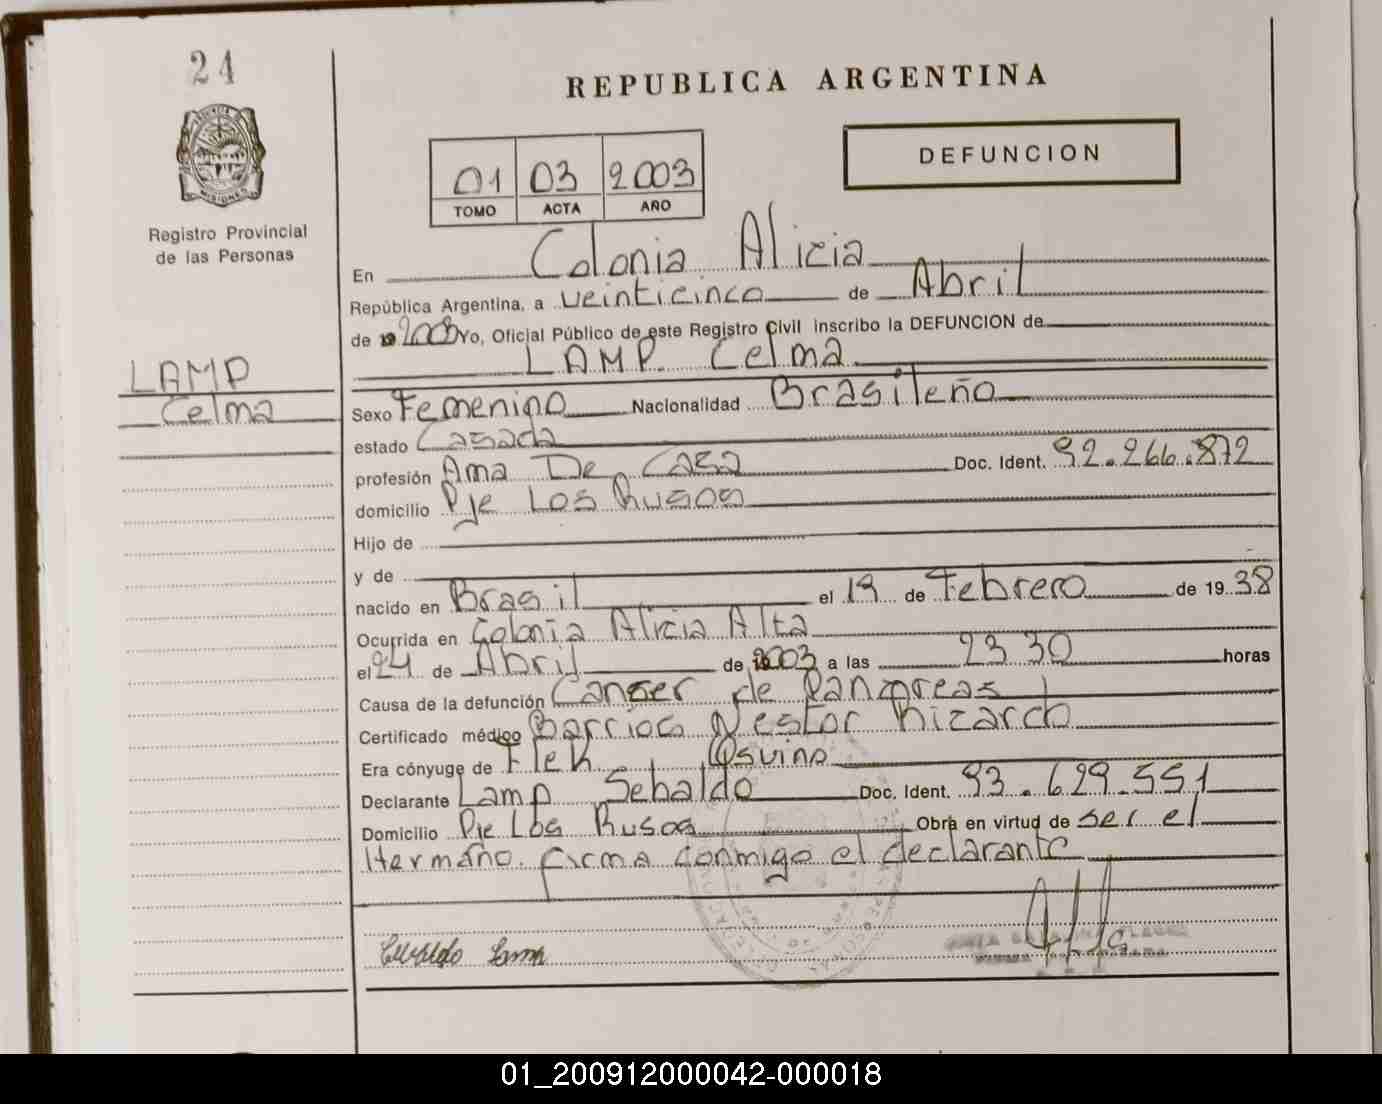 24
REPUBLICA ARGENTINA
01 03 2003
TOMO ACTA AÑO
DEFUNCION
Registro Provincial
de las Personas
LAMP
Celma
En Colonia Alicia
República Argentina, a veinticinco de Abril
de 2003 Yo, Oficial Público de este Registro Civil inscribo la DEFUNCION de
LAMP Celma
Sexo Femenino Nacionalidad Brasileño
estado Casada
profesión Ama De Casa Doc. Ident. 92.266.872
domicilio Pje Los Rusos
Hijo de
y de
nacido en Brasil el 19 de Febrero de 1938
Ocurrida en Colonia Alicia Alta
el 24 de Abril de 2003 a las 23 30 horas
Causa de la defunción Canser de Pancreas
Certificado médico Barrios Nestor Rizardo
Era cónyuge de Flek Osvino
Declarante Lamp Sebaldo Doc. Ident. 93.629.551
Domicilio Pje Los Rusos Obra en virtud de ser el
Hermano. firma conmigo el declarante
01_200912000042-000018